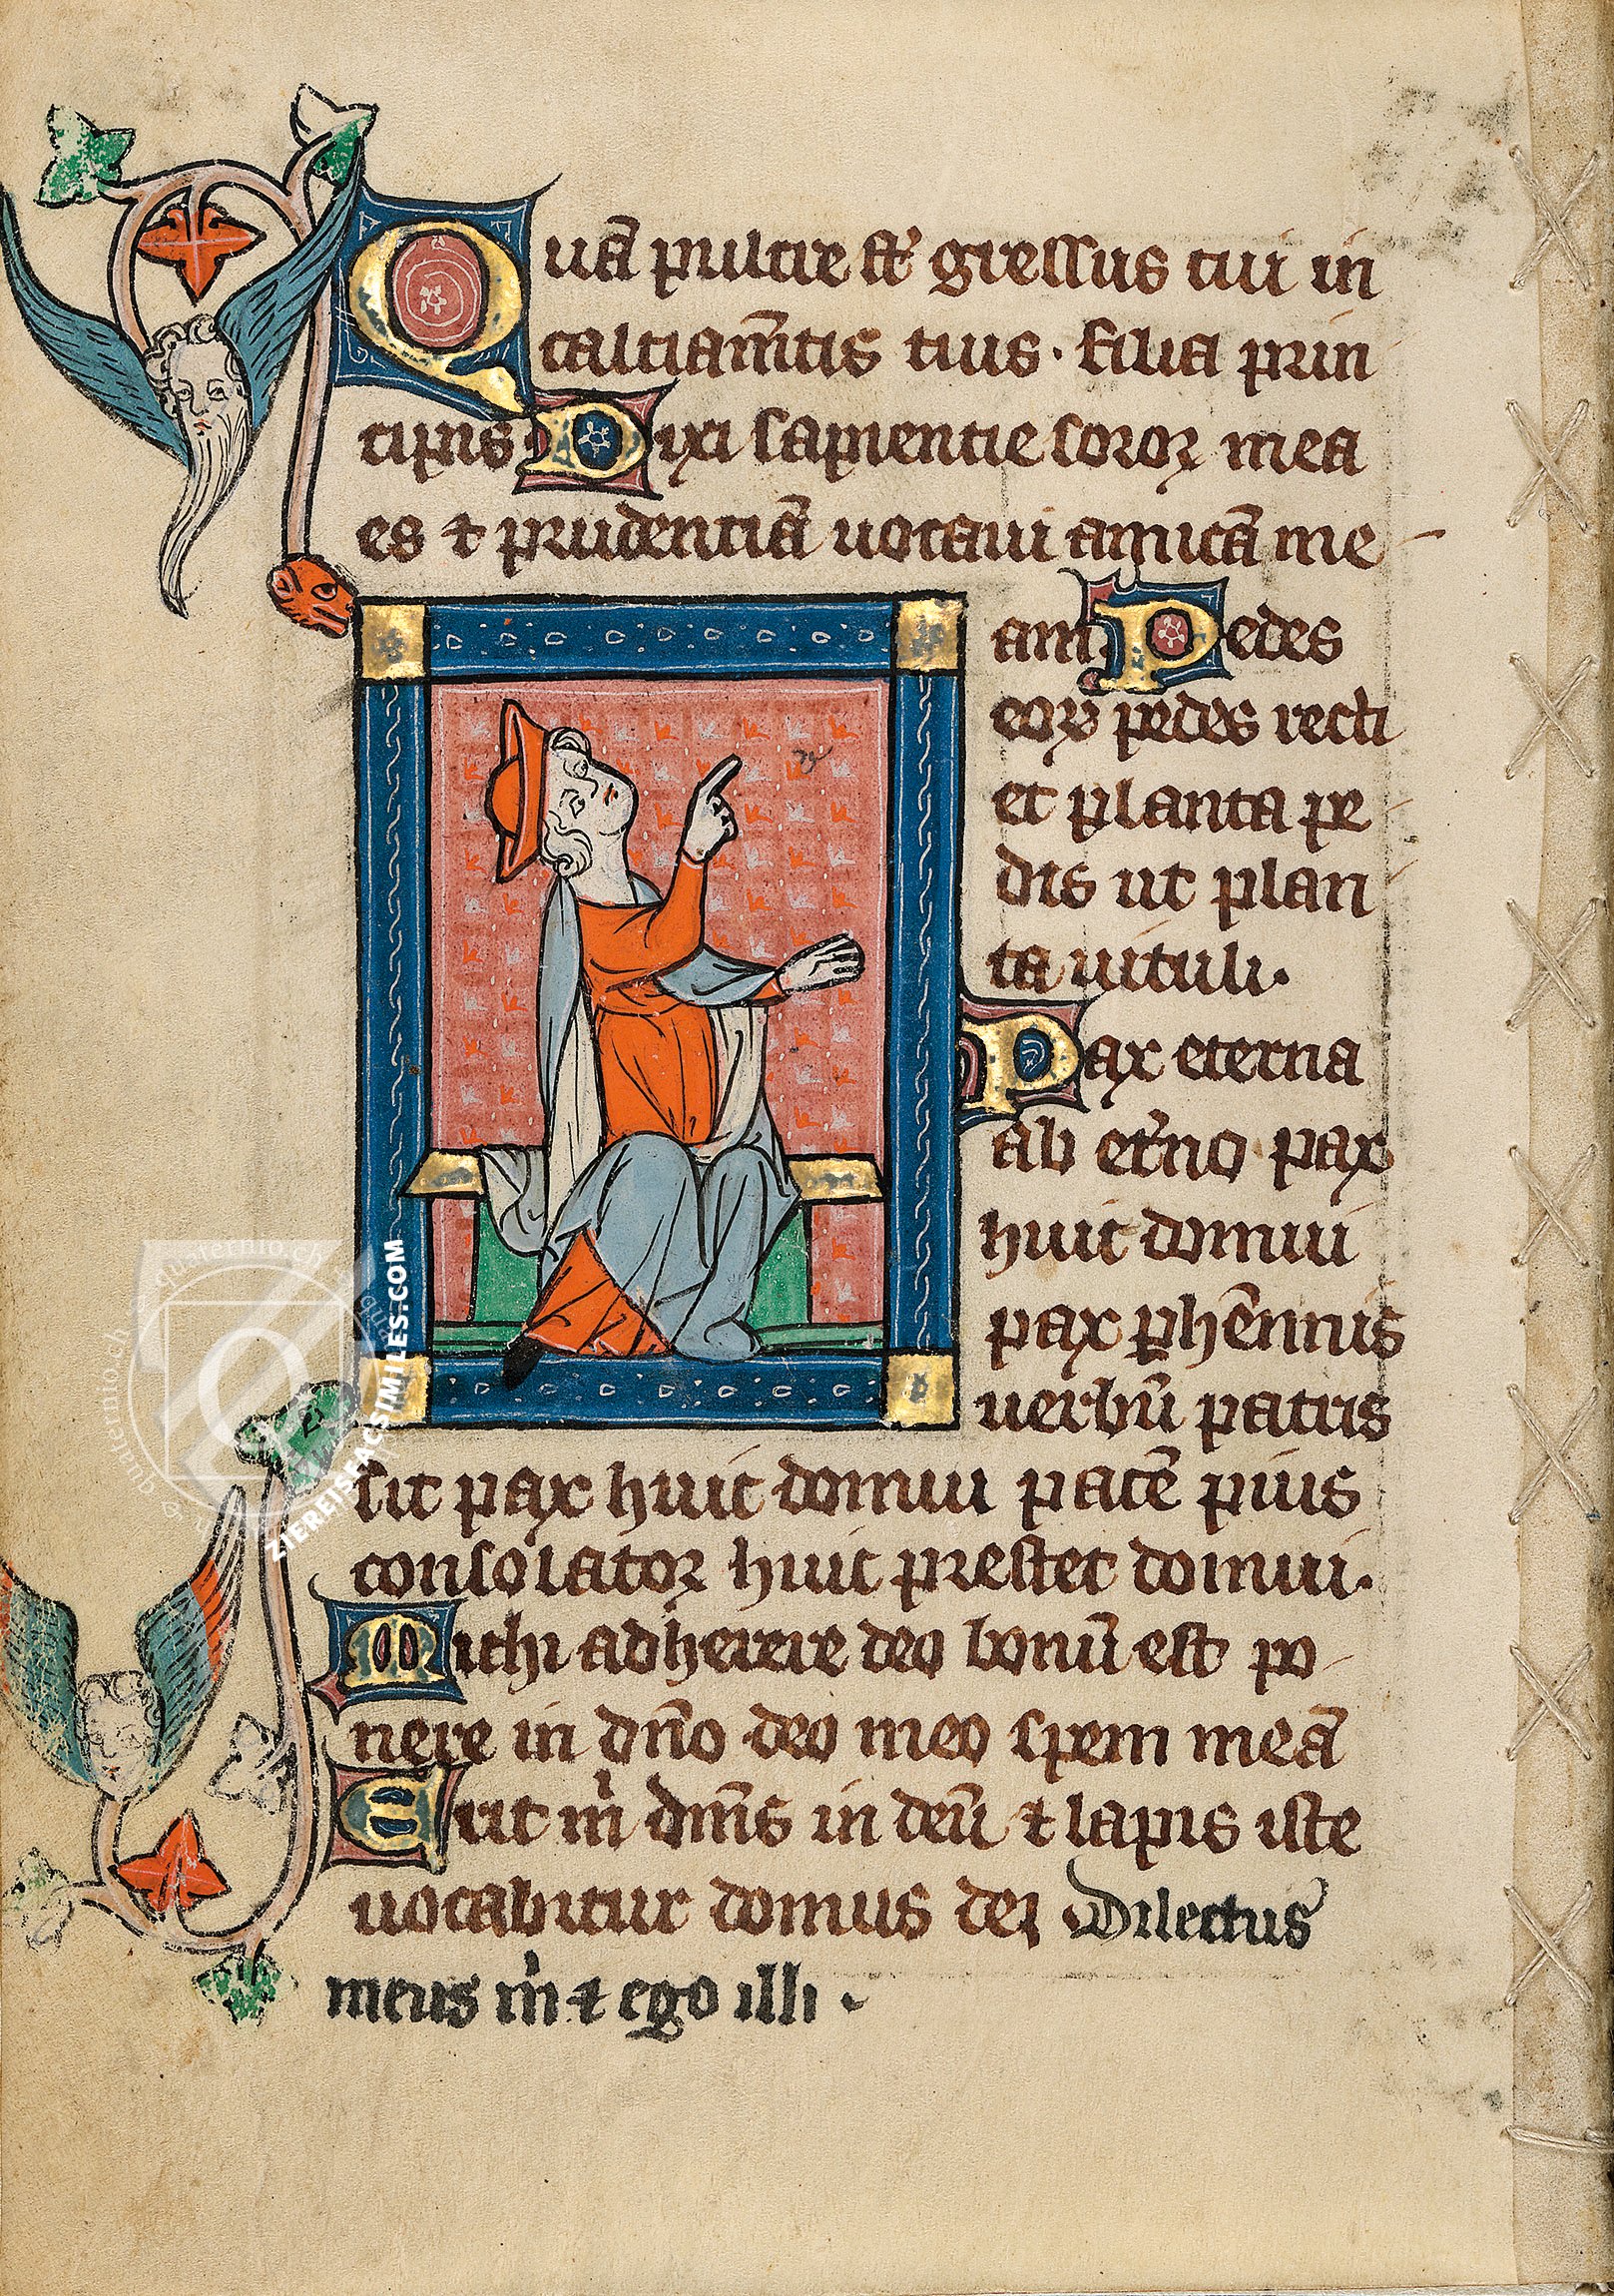 Quā pulcre st̄ gressus tui in
calciam̄tis tuis. filia prin
cipis Dixi sapientie soror mea
es ⁊ prudentiā uocaui amicā me
am. Pedes
eoꝝ pedes recti
et planta pe
dis ut plan
ta uituli.
Pax eterna
ab et̾no pax
huic domui
pax ꝑhēnnis
uerbū patris
sit pax huic domui pacē pius
consolator huic prestet domui.
Michi adherere deo bonū est po
nere in dn̄o deo meo spem meā
Erit m̍ dn̄s in deū ⁊ lapis iste
uocabitur domus dei Dilectus
meus m̍ ⁊ ego illi .
quaternio.ch
ZIEREIS FACSIMILES.COM